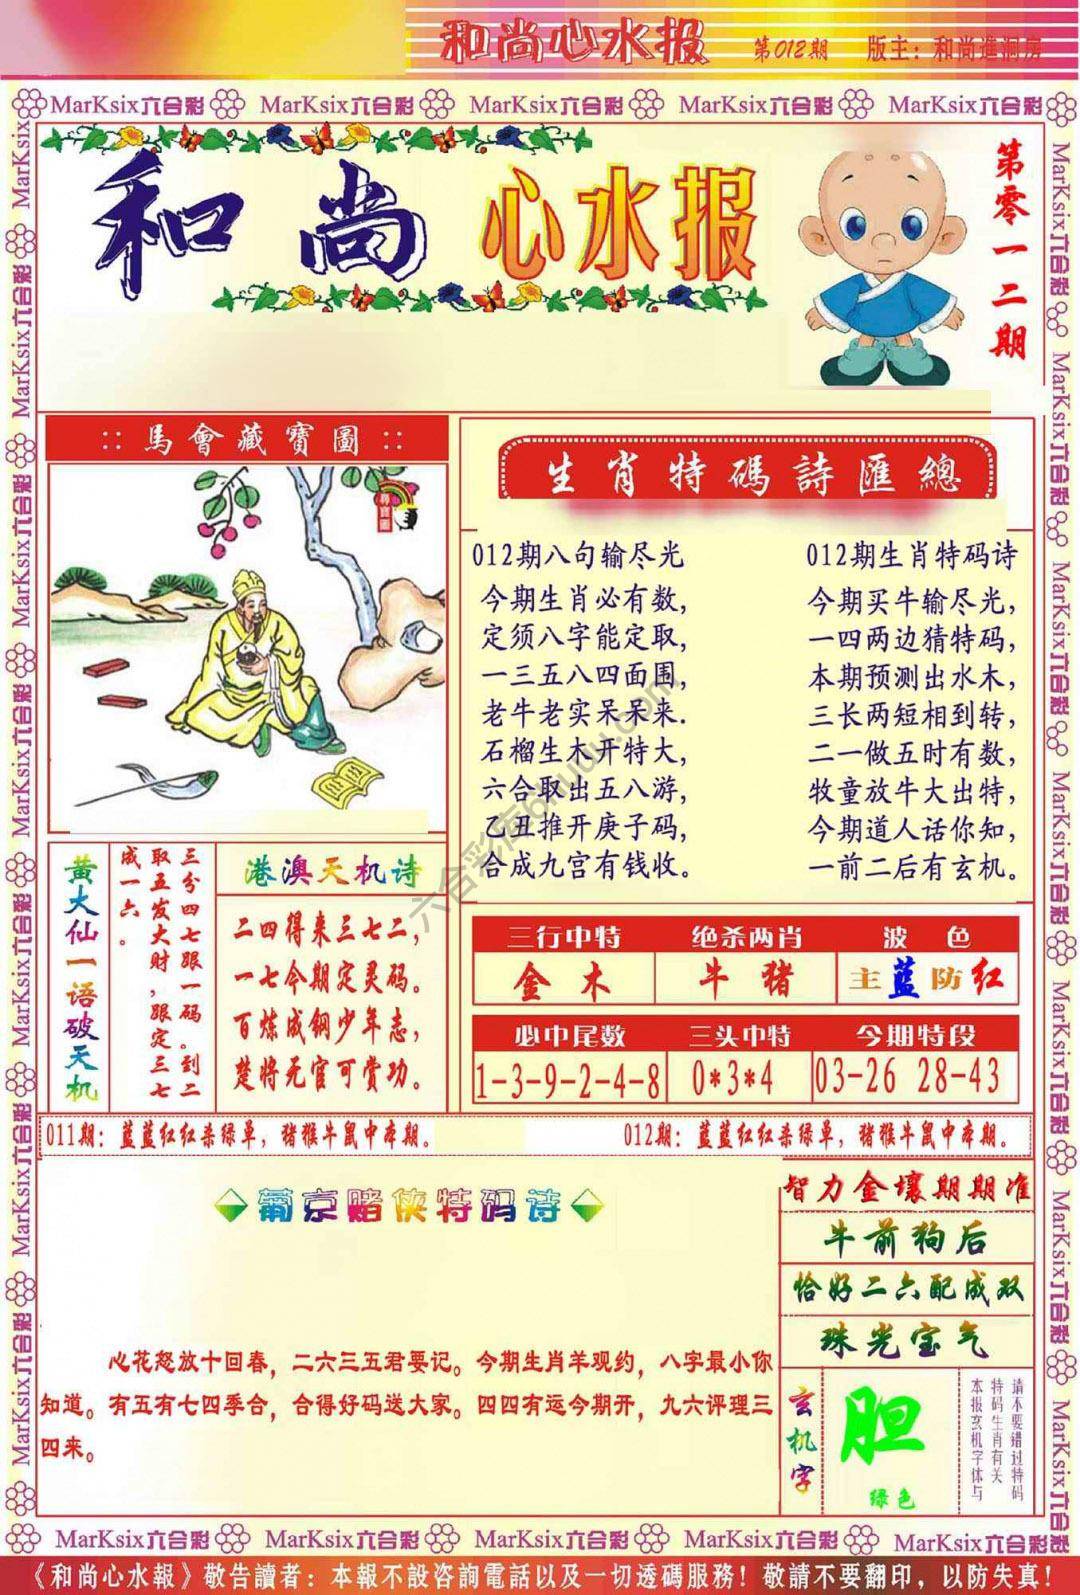 和尚心水报
第012期
版主：和尚進洞房
MarKsix六合彩 MarKsix六合彩 MarKsix六合彩 MarKsix六合彩 MarKsix六合彩
和尚心水报
第零一二期
::馬會藏寶圖::
尋寶圖
生肖特碼詩匯總
012期八句输尽光
今期生肖必有数，
定须八字能定取，
一三五八四面围，
老牛老实呆呆来.
石榴生木开特大，
六合取出五八游，
乙丑推开庚子码，
合成九宫有钱收。
012期生肖特码诗
今期买牛输尽光，
一四两边猜特码，
本期预测出水木，
三长两短相到转，
二一做五时有数，
牧童放牛大出特，
今期道人话你知，
一前二后有玄机。
黄大仙一语破天机
三分四七跟一码。到二
取五发大财，跟定三七
成一六。
港澳天机诗
二四得来三七二，
一七今期定灵码。
百炼成钢少年志，
楚将无官可赏功。
三行中特 绝杀两肖 波色
金木 牛猪 主蓝防红
必中尾数 三头中特 今期特段
1-3-9-2-4-8 0*3*4 03-26 28-43
011期：蓝蓝红红杀绿单，猪猴牛鼠中本期。
012期：蓝蓝红红杀绿单，猪猴牛鼠中本期。
葡京赌侠特码诗
心花怒放十回春，二六三五君要记。今期生肖羊观约，八字最小你
知道。有五有七四季合，合得好码送大家。四四有运今期开，九六评理三
四来。
智力金壤期期准
牛前狗后
恰好二六配成双
珠光宝气
玄机字
胆
绿色
请不要错过特码
特码生肖有关
本报玄机字体与
六合彩库6huuu.com
MarKsix六合彩 MarKsix六合彩 MarKsix六合彩 MarKsix六合彩 MarKsix六合彩
《和尚心水報》敬告讀者：本報不設咨詢電話以及一切透碼服務！敬請不要翻印，以防失真！